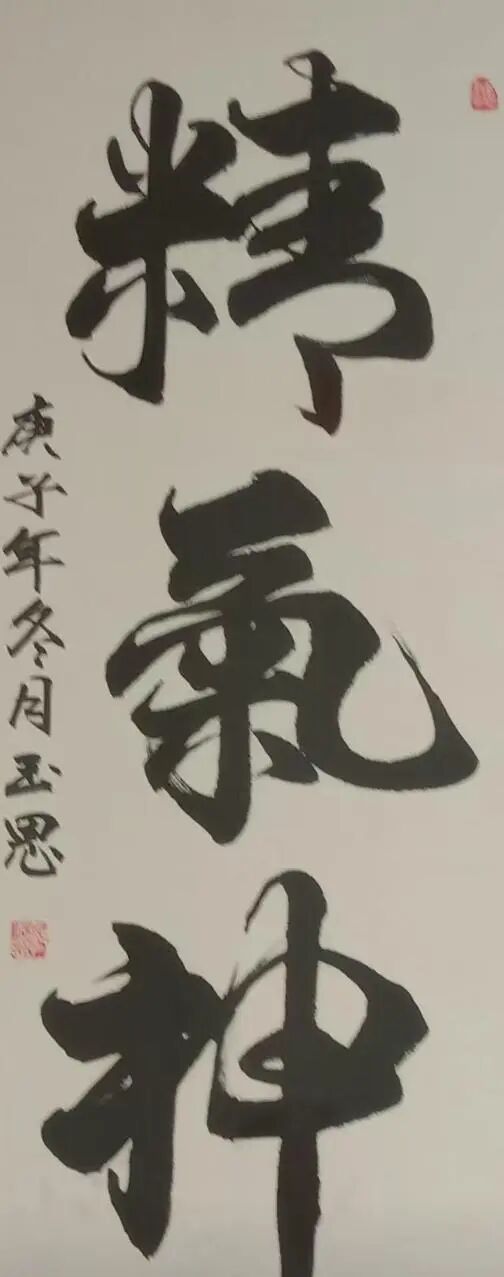 精氣神
庚子年冬月玉思